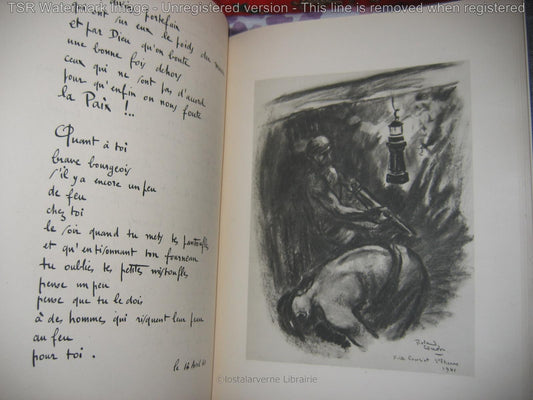 TSR Watermark Image - Unregistered version - This line is removed when registered
portefaix
ont sur eux le poids du
et par Dieu qu'on boute
une bonne fois dehors
ceux qui ne sont pas d'accord
pour qu'enfin on nous foute
la Paix !..
Quant à toi
brave bourgeois
s'il y a encore un peu
de feu
chez toi
le soir quand tu mets tes pantoufles
et qu'en tisonnant ton fourneau
tu oublies tes petites mistoufles
pense un peu
pense que tu le dois
à des hommes qui risquent leur peau
au feu
pour toi.
le 16 Avril 41
1941
© lostalarverne Librairie